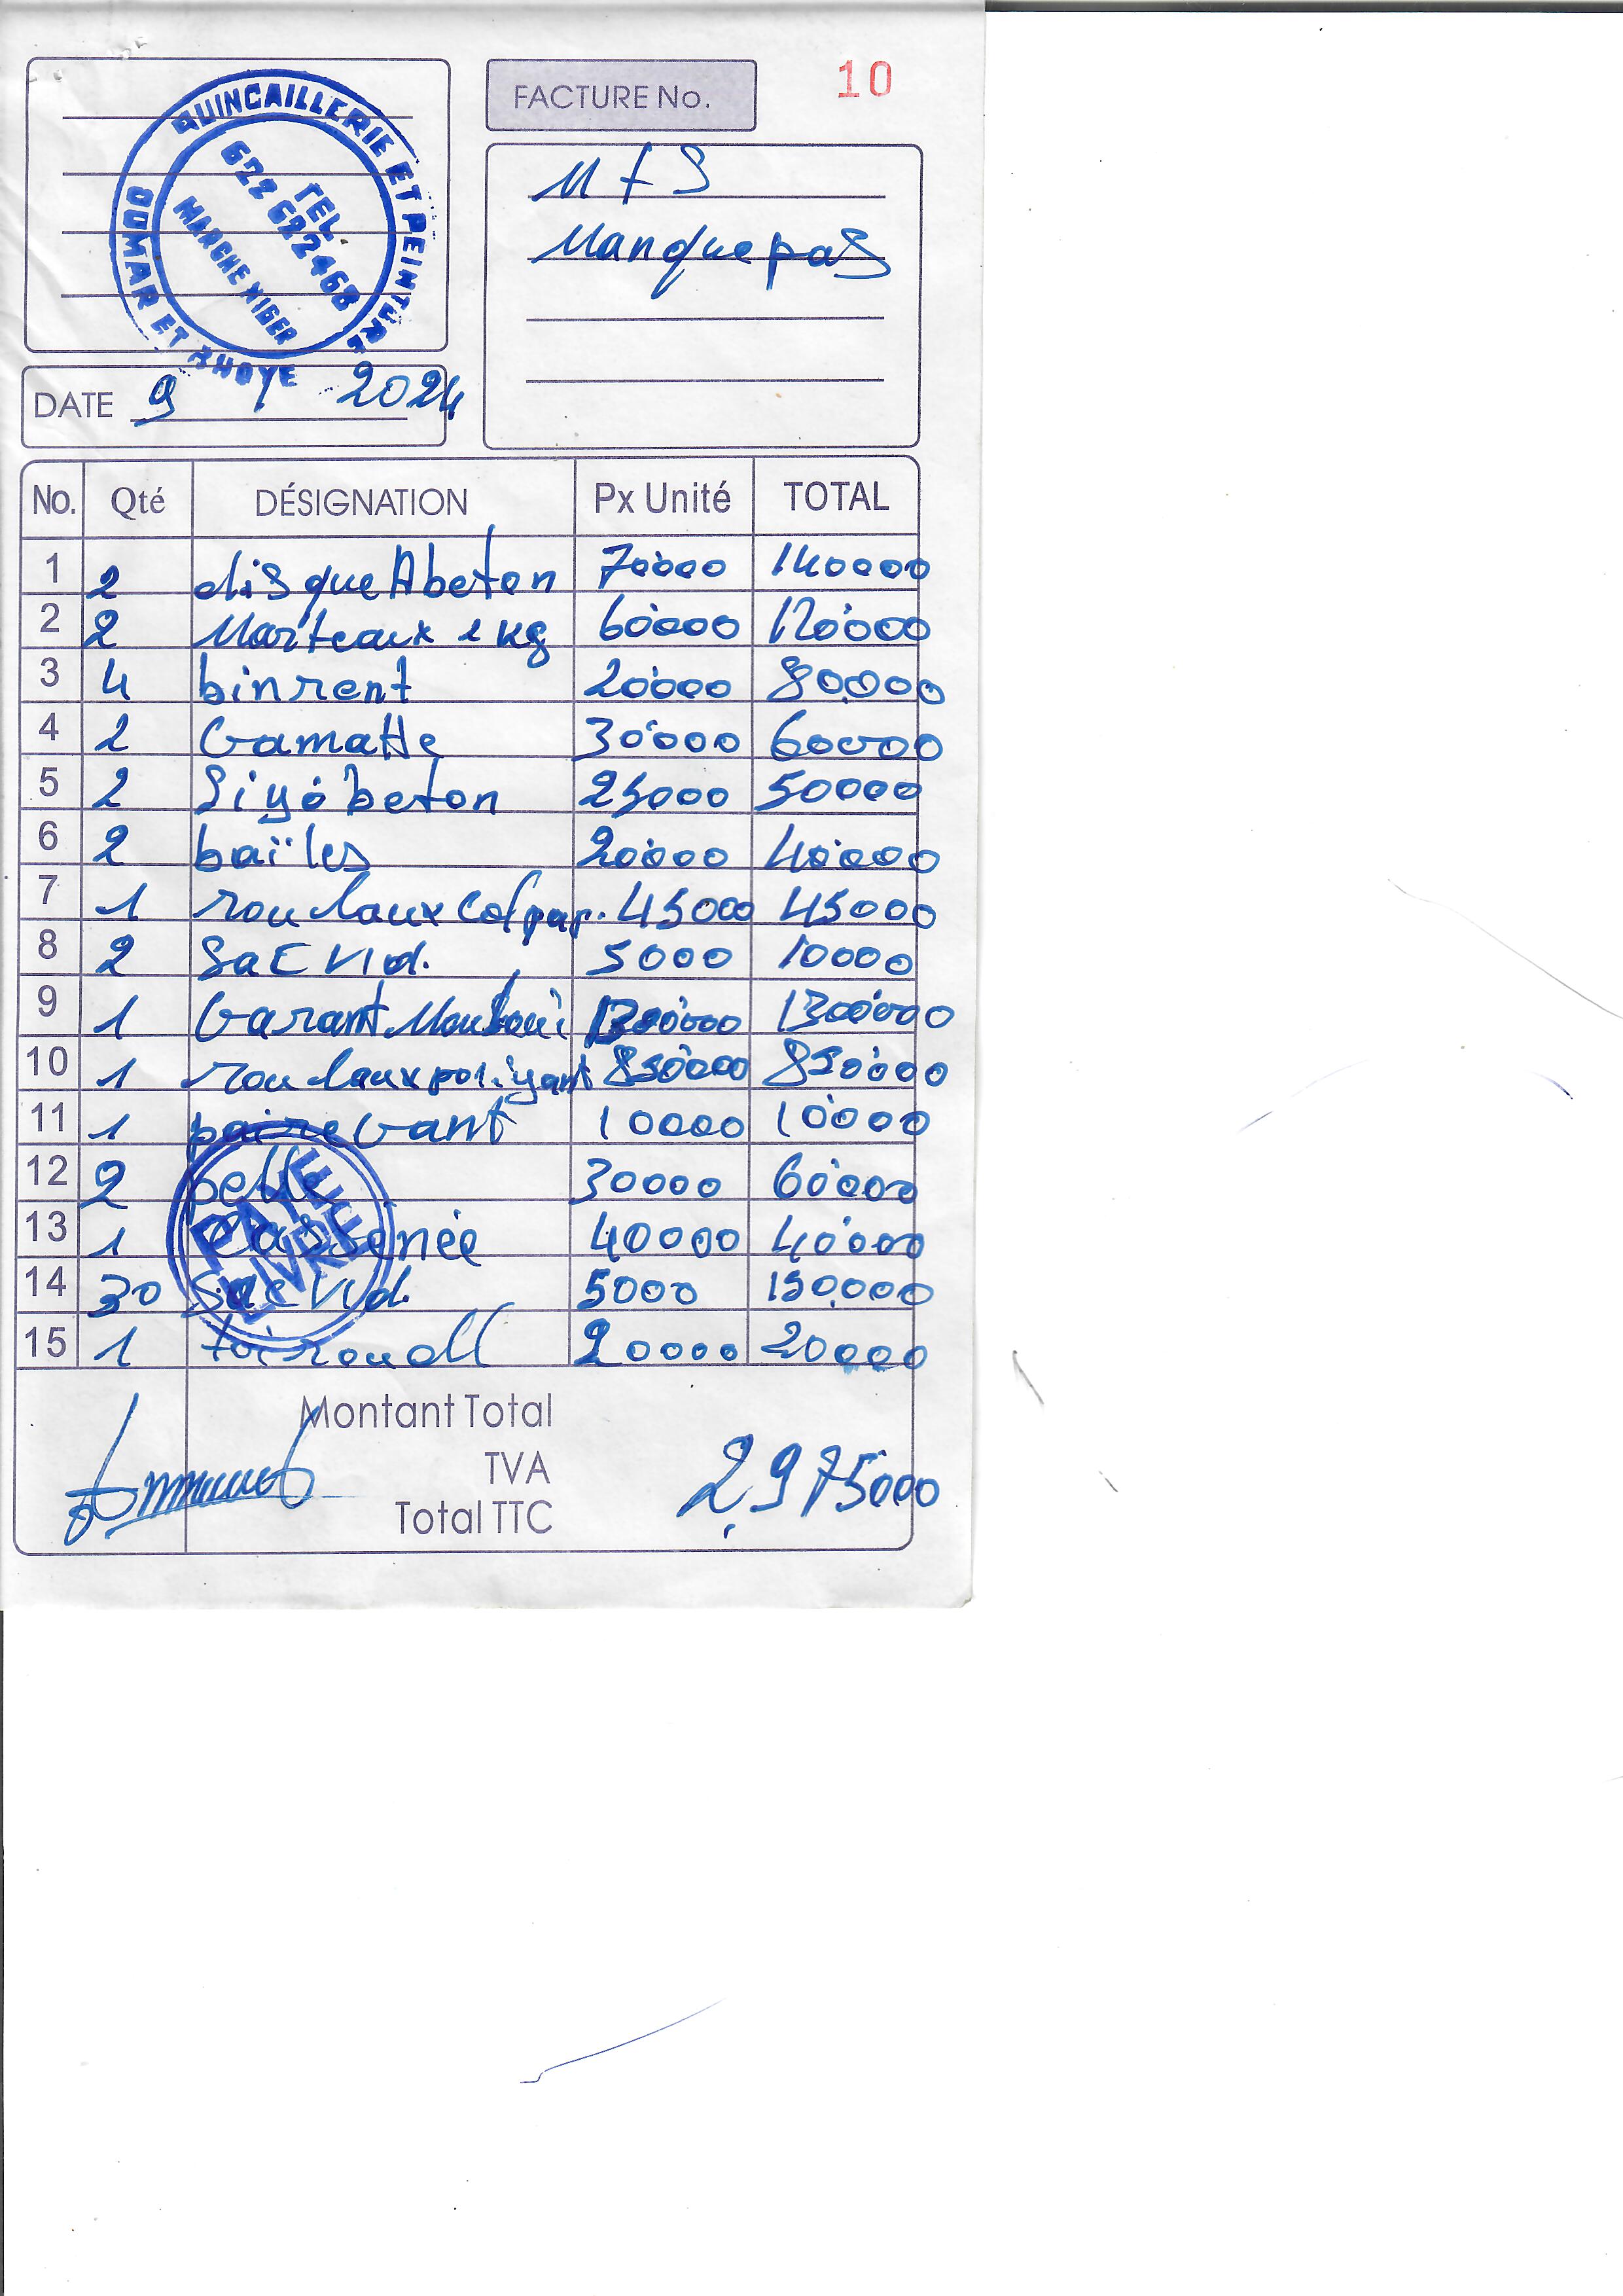 QUINCAILLERIE ET PEINTURE
OUMAR ET
TEL.
622 622 468
MARCHE NIGER
FACTURE No. 10
Manquepas
DATE 9 2024
No. Qté DÉSIGNATION Px Unité TOTAL
1 2 disque A beton 70'000 140000
2 2 Marteaux 1 kg 60'000 120'000
3 4 binrent 20'000 80.000
4 2 Gamatte 30'000 60000
5 2 beton 25000 50000
6 2 baïles 20'000 40'000
7 1 roulaux 45000 45000
8 2 Sac Vid. 5000 10000
9 1 Garant 1300'000 1300'000
10 1 roulaux 850'000 850'000
11 1 paire Gant 10000 10'000
12 2 pelle 30000 60'000
13 1 40000 40'000
14 30 Sac Vid. 5000 150.000
15 1 20000 20000
PAYE
LIVRE
Montant Total
TVA
Total TTC
2,975000